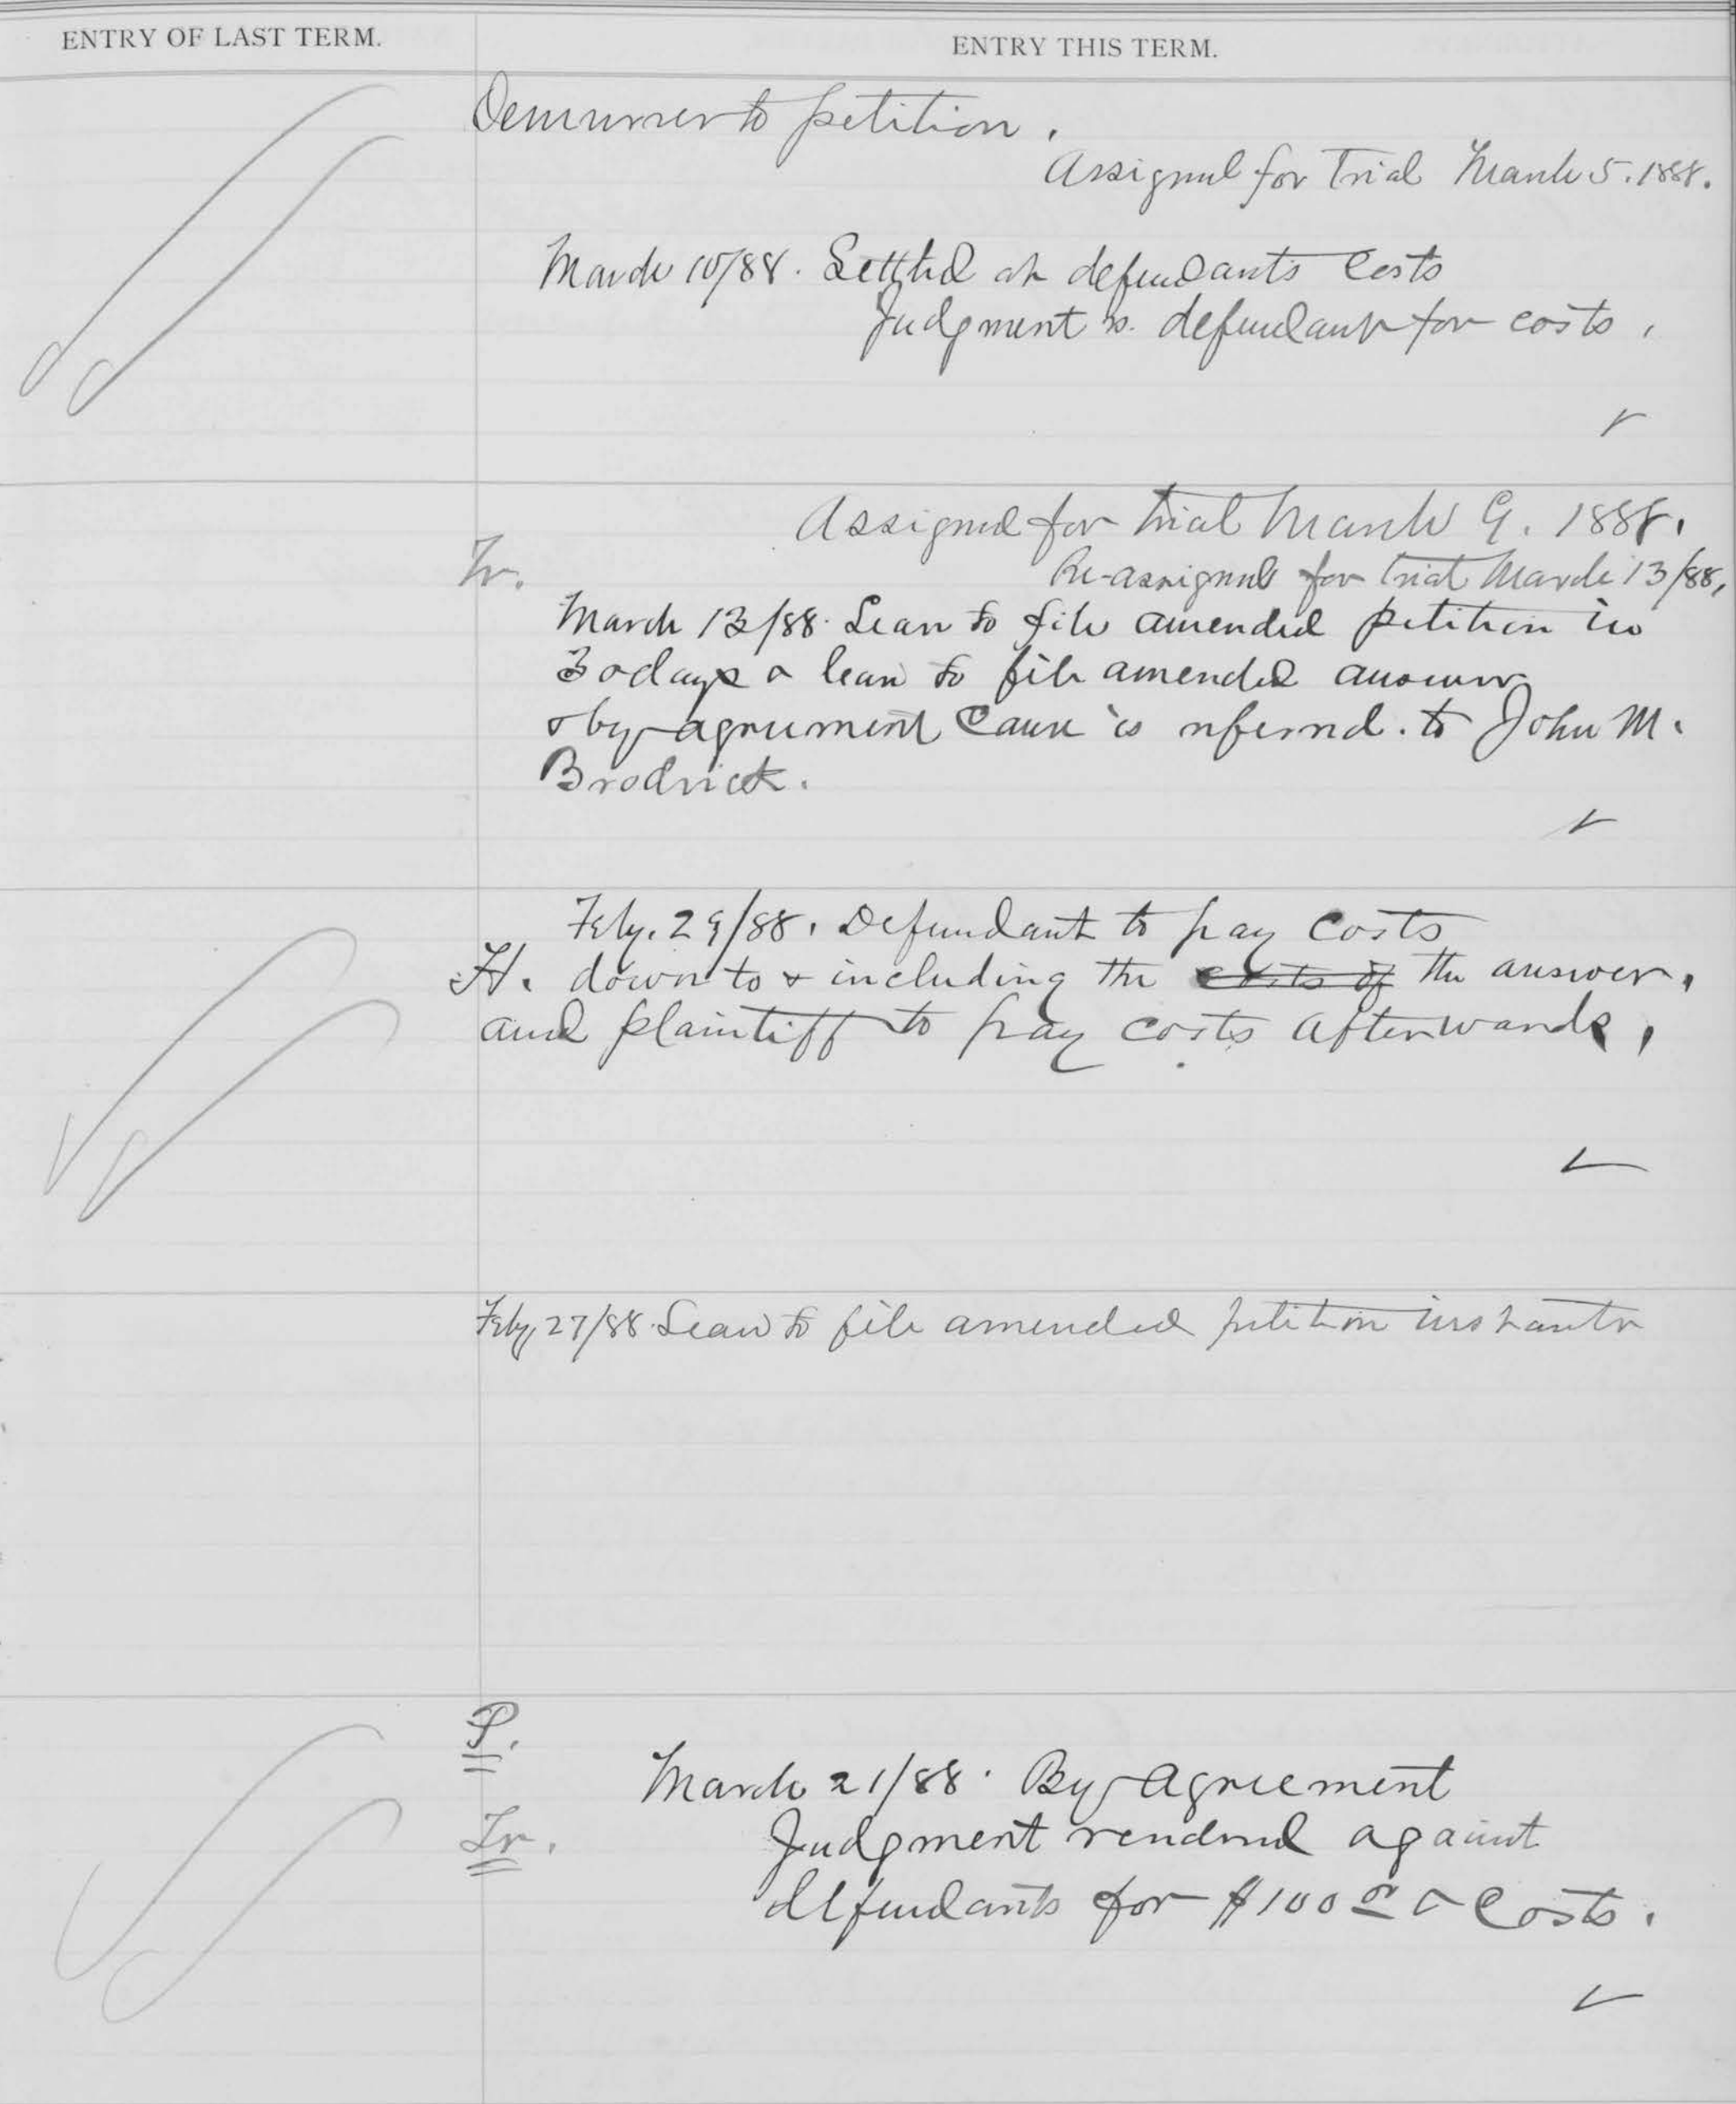 ENTRY OF LAST TERM.
ENTRY THIS TERM.
Demurrer to petition.
Assigned for Trial March 5. 1888.
March 10/88. Settled at defendants costs
Judgment vs. defendant for costs.
Assigned for trial March 9. 1888.
Tr.
Re-assigned for trial March 13/88,
March 13/88. Leave to file amended petition in
30 days & leave to file amended answer
& by agreement cause is referred. to John M.
Brodrick.
Feby. 29/88. Defendant to pay costs
H. down to & including the costs of the answer,
and plaintiff to pay costs afterwards.
Feby 27/88 Leave to file amended petition instanter
P.
March 21/88. By agreement
Tr.
Judgment rendered against
defendants for $100 00 & costs.